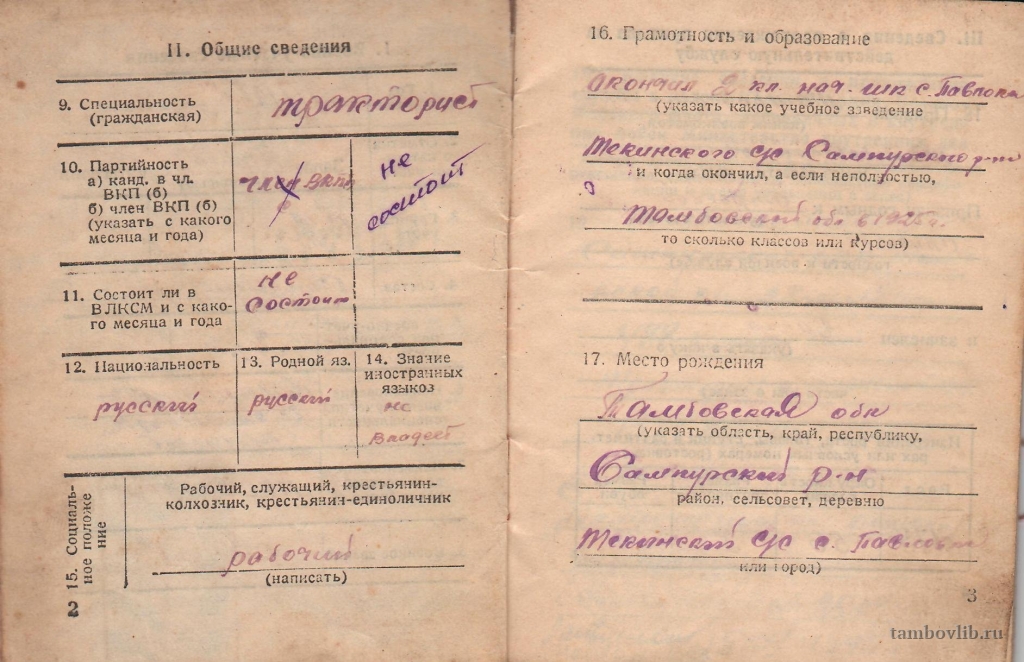 II. Общие сведения
9. Специальность
(гражданская)
тракторист
10. Партийность
а) канд. в чл.
ВКП (б)
б) член ВКП (б)
(указать с какого
месяца и года)
член ВКПб
не
состоит
11. Состоит ли в
ВЛКСМ и с како-
го месяца и года
не
состоит
12. Национальность
русский
13. Родной яз.
русский
14. Знание
иностранных
языков
не
владеет
15. Социаль-
ное положе
ние
Рабочий, служащий, крестьянин-
колхозник, крестьянин-единоличник
рабочий
(написать)
2
16. Грамотность и образование
окончил 2 кл. нач. шк с. Павловка
(указать какое учебное заведение
Текинского с/с Сампурского р-на
и когда окончил, а если неполностью,
Тамбовский обл в 1925 г.
то сколько классов или курсов)
17. Место рождения
Тамбовская обл
(указать область, край, республику,
Сампурский р-н
район, сельсовет, деревню
Текинский с/с с. Павловка
или город)
3
tambovlib.ru